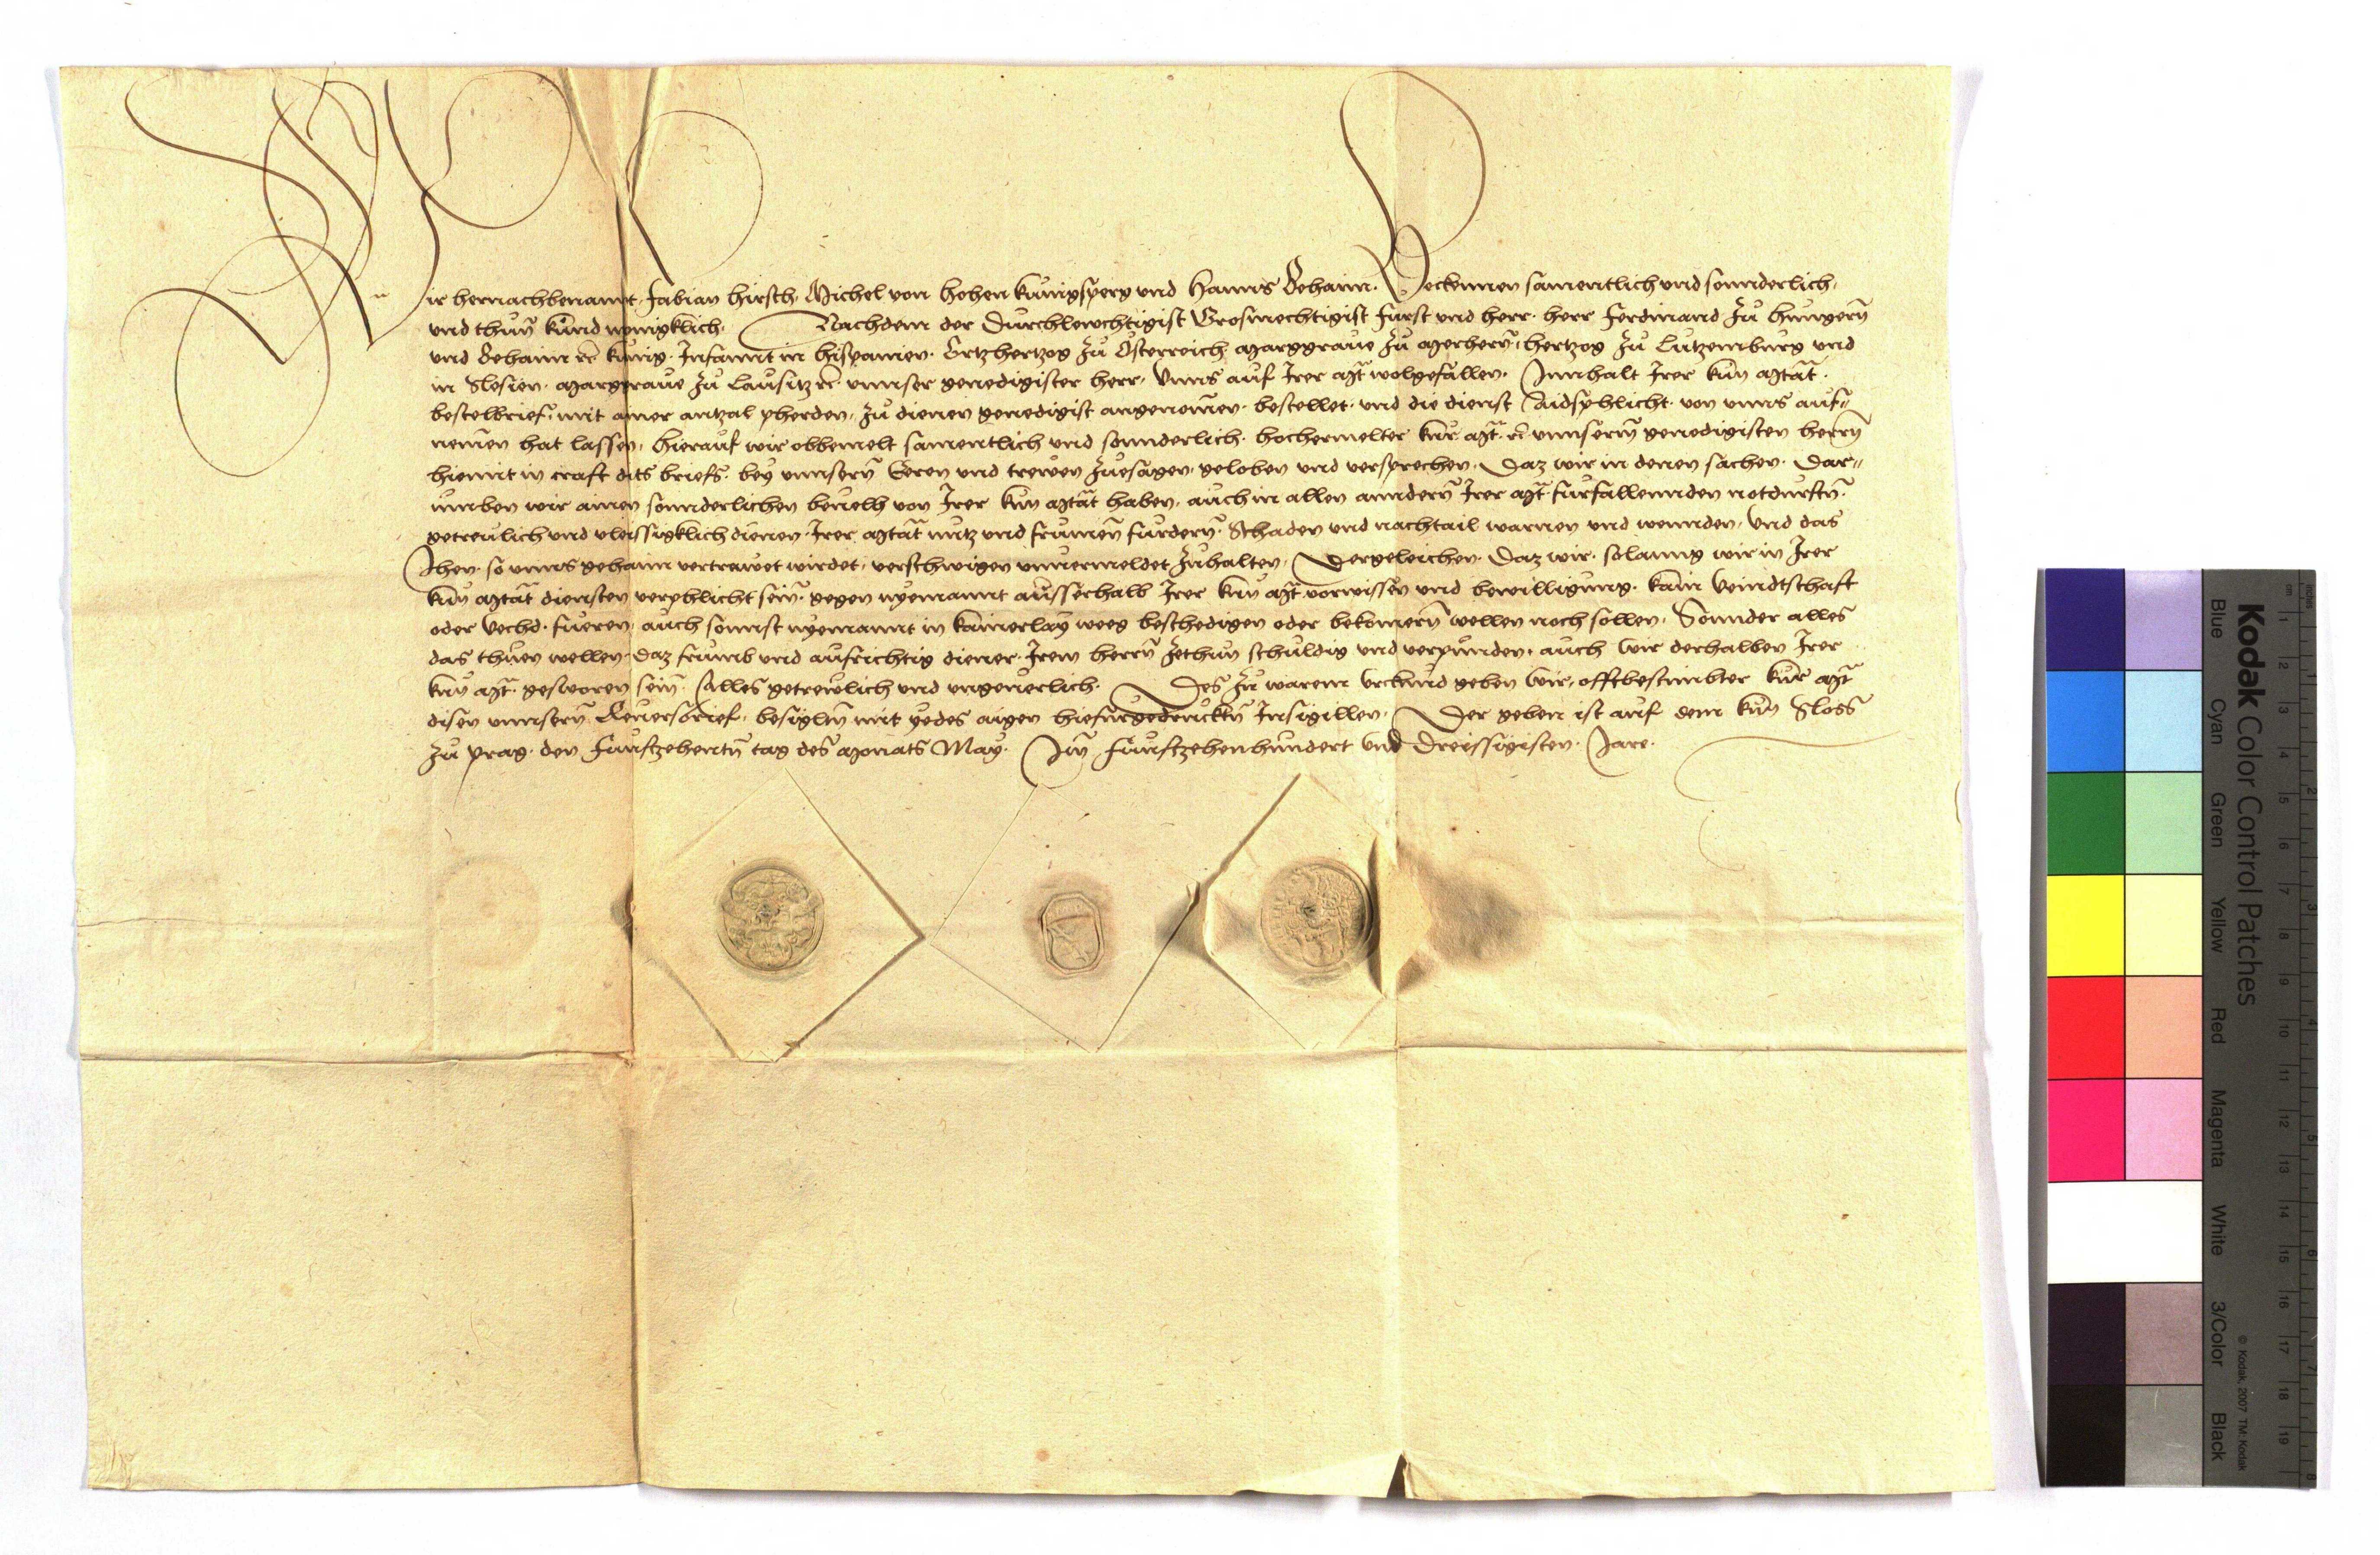 Wir hernachbenannt, Fabian Hirsch, Michel von Hohen Kunigsperg und Hanns Behaim. Bekennen samentlich und sonnderlich,
und thun kund menigklich. Nachdem der Durchlewchtigist Grosmechtigist Furst und herr. herr Ferdinand zu Hungern̄
und Behaim ꝛc̄ kunig. Infannt in Hispanien. Ertzhertzog zu Osterreich. Marggraue zu Merhern̄, hertzog zu Lutzemburg und
in Slesien. Marggraue zu Lausitz ꝛc̄. unnser genedigister herr. Unns auf Irer Mt̄ wolgefallen. Innhalt Irer kun̄ Mtāt.
bestelbrief. mit ainer antzal pherden, zu dienen genedigist angenomēn. bestellet. und die dienst Aidsphlicht. von unns auf=
nemēn hat lassen, Hierauf wir obbemelt samentlich und sonnderlich. hochermelter kūr. Mt̄. ꝛc̄. unnserm̄ genedigisten herrn̄
hiemit in craft dits briefs. bey unnsern̄ Eeren und trewen zuesagen, geloben und versprechen. Daz wir in denen sachen. Dar=
umben wir ainen sonnderlichen beuelh von Irer kun̄ Mtāt haben, auch in allen anndern̄ Irer Mt̄. furfallennden notdurftn̄.
getreulich und vleissigklich dienen. Irer Mtāt nutz und frumen̄ furdern̄. Schaden und nachtail warnen und wennden, Und das
Jhen. so unns gehaim vertrawet wirdet, verschwigen unuermeldet zuhalten, Dergeleichen. Daz wir. solanng wir in Irer
kun̄ Mtāt diensten verphlicht sein̄. gegen nyemannt ausserhalb Irer kun̄ Mt̄ vorwissen und bewilligung. kain Veindtschaft
oder Vechd. fueren, auch sonnst nyemannt in kainerlay weeg beschedigen oder bekomern̄ wellen noch sollen, Sonnder alles
das thuen wellen. Daz frumb und aufrichtig diener. Irem herrn̄ zethun schuldig und verpunden, auch wir derhalben Irer
kun̄ Mt̄. gesworen sein̄. Alles getrewlich und ungeuerlich. Des zu warem Urkund geben wir, offtbestimbter kūr Mt̄
disen unnsern̄ Reuersbrief, besigltn̄ mit yedes aigen hiefurgedrucktn̄ Insigillen, Der geben ist auf dem kun̄ Sloss
zu prag. den Funftzehentn̄ tag des Monats May. Im̄ Funftzehenhundert Und Dreissigisten. Jare.
Kodak Color Control Patches
Blue Cyan Green Yellow Red Magenta White 3/Color Black
© Kodak, 2007 TM: Kodak